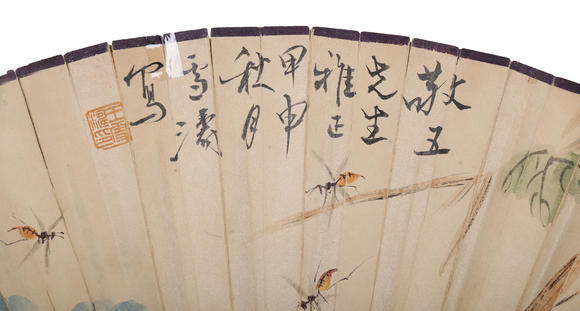 敬五
先生
雅正
甲申
秋月
雪濤
寫